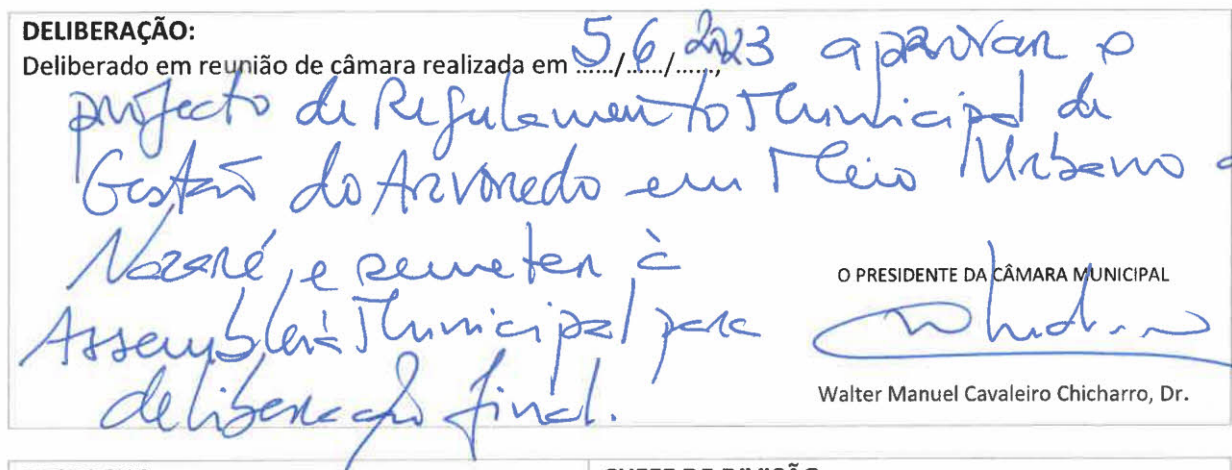 DELIBERAÇÃO:
Deliberado em reunião de câmara realizada em 5/6/2023, aprovar o
projecto de Regulamento Municipal de
Gestão do Arvoredo em Meio Urbano
Nazaré, e remeter à
Assembleia Municipal para
deliberação final.
O PRESIDENTE DA CÂMARA MUNICIPAL
Walter Manuel Cavaleiro Chicharro, Dr.